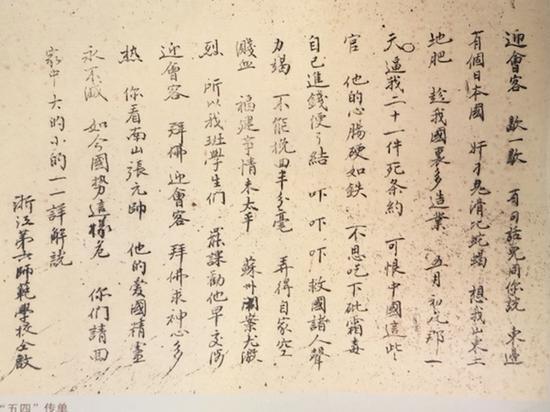 迎會客 歇一歇 有句話兒同你說 東邊
有個日本國 奸刁兇滑比蛇蝎 想我山東土
地肥 趁我國裏多造業 五月初九那一
天 逼我二十一件死条約 可恨中國這些
官 他的心腸硬如鉄 不思吃下砒霜毒
自己進錢便了結 吓吓吓 救國諸人聲
力竭 不能挽回半分毫 弄得自家空
濺血 福建事情未太平 蘇州案尤激
烈 所以我班學生們 罷課勸他早交涉
迎會客 拜佛 迎會客 拜佛求神心多
热 你看南山張元帥 他的爱國精靈
永不滅 如今國勢這樣危 你們請回
家中 大的小的一一詳解說
浙江第六師範學校仝啟
“五四”传单